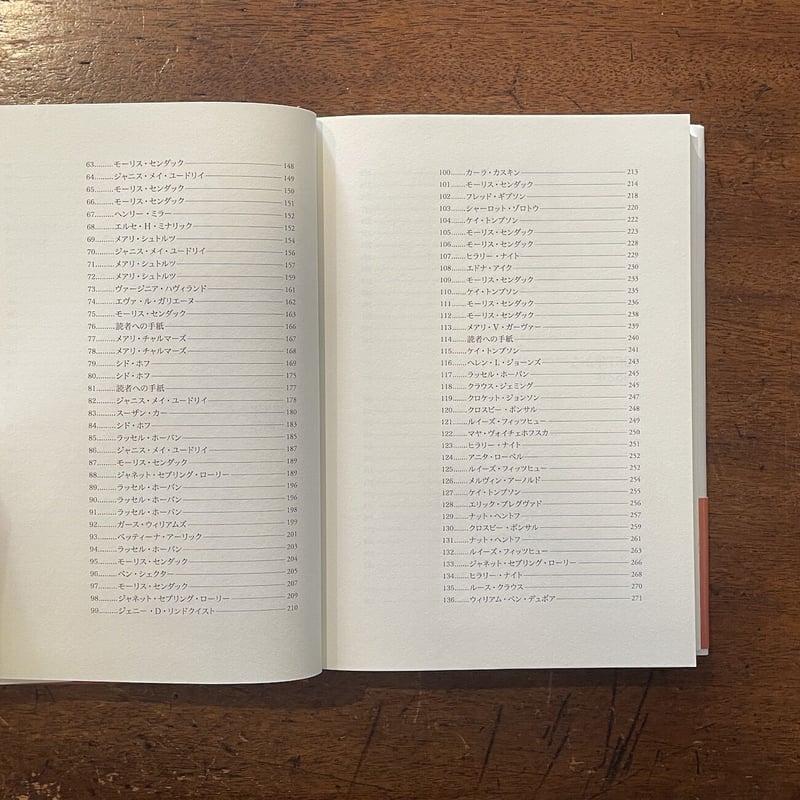 63……モーリス・センダック 148
64……ジャニス・メイ・ユードリイ 149
65……モーリス・センダック 150
66……モーリス・センダック 151
67……ヘンリー・ミラー 152
68……エルセ・H・ミナリック 152
69……メアリ・シュトルツ 154
70……ジャニス・メイ・ユードリイ 156
71……メアリ・シュトルツ 157
72……メアリ・シュトルツ 159
73……ヴァージニア・ハヴィランド 161
74……エヴァ・ル・ガリエーヌ 162
75……モーリス・センダック 163
76……読者への手紙 166
77……メアリ・チャルマーズ 167
78……メアリ・チャルマーズ 168
79……シド・ホフ 169
80……シド・ホフ 175
81……読者への手紙 177
82……ジャニス・メイ・ユードリイ 178
83……スーザン・カー 180
84……シド・ホフ 183
85……ラッセル・ホーバン 185
86……ジャニス・メイ・ユードリイ 187
87……モーリス・センダック 189
88……ジャネット・セブリング・ローリー 189
89……ラッセル・ホーバン 196
90……ラッセル・ホーバン 196
91……ラッセル・ホーバン 198
92……ガース・ウィリアムズ 199
93……ベッティーナ・アーリック 201
94……ラッセル・ホーバン 203
95……モーリス・センダック 204
96……ベン・シェクター 205
97……モーリス・センダック 207
98……ジャネット・セブリング・ローリー 209
99……ジェニー・D・リンドクイスト 210
100……カーラ・カスキン 213
101……モーリス・センダック 214
102……フレッド・ギプソン 218
103……シャーロット・ゾロトウ 220
104……ケイ・トンプソン 222
105……モーリス・センダック 223
106……モーリス・センダック 228
107……ヒラリー・ナイト 229
108……エドナ・アイク 230
109……モーリス・センダック 233
110……ケイ・トンプソン 235
111……モーリス・センダック 236
112……モーリス・センダック 238
113……メアリ・V・ガーヴァー 239
114……読者への手紙 240
115……ケイ・トンプソン 241
116……ヘレン・L・ジョーンズ 243
117……ラッセル・ホーバン 245
118……クラウス・ジェミング 245
119……クロケット・ジョンソン 247
120……クロスビー・ボンサル 248
121……ルイーズ・フィッツヒュー 249
122……マヤ・ヴォイチェホフスカ 250
123……ヒラリー・ナイト 251
124……アニタ・ローベル 252
125……ルイーズ・フィッツヒュー 252
126……メルヴィン・アーノルド 254
127……ケイ・トンプソン 255
128……エリック・ブレグヴァド 256
129……ナット・ヘントフ 257
130……クロスビー・ボンサル 259
131……ナット・ヘントフ 261
132……ルイーズ・フィッツヒュー 263
133……ジャネット・セブリング・ローリー 266
134……ヒラリー・ナイト 268
135……ルース・クラウス 270
136……ウィリアム・ペン・デュボア 271